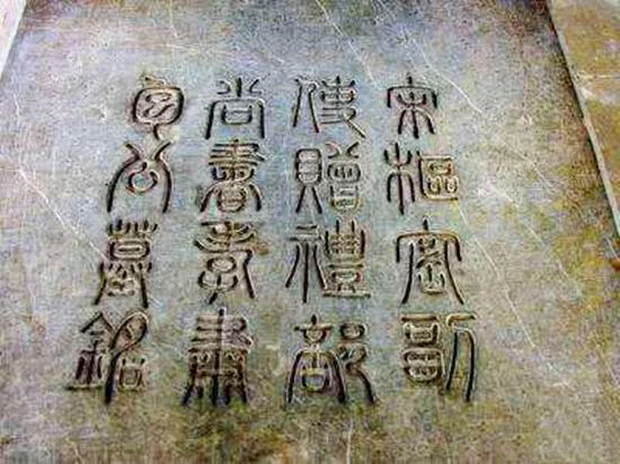 宋樞密副
使贈禮部
尚書孝肅
包公墓銘